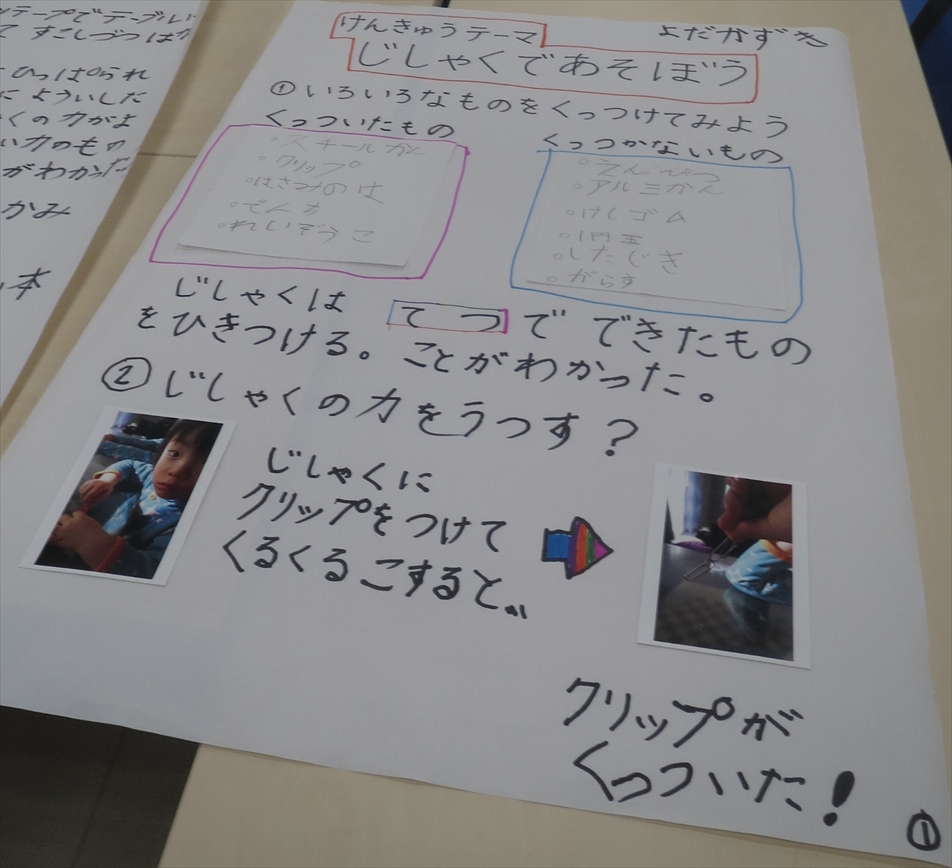 けんきゅうテーマ
よだかずき
じしゃくであそぼう
①いろいろなものをくっつけてみよう
くっついたもの
◦スチールかん
◦クリップ
◦はさみのは
◦でんち
◦れいぞうこ
くっつかないもの
◦えんぴつ
◦アルミかん
◦けしゴム
◦1円玉
◦したじき
◦がらす
じしゃくは てつで できたもの
をひきつける。ことがわかった。
②じしゃくの力をうつす?
じしゃくに
クリップをつけて
くるくるこすると…
クリップが
くっついた!
①
テープでテーブルに
て すこしづつはな
ひっぱられ
にようい した
くの力がよ
い力のもの
がわかった
かみ
本